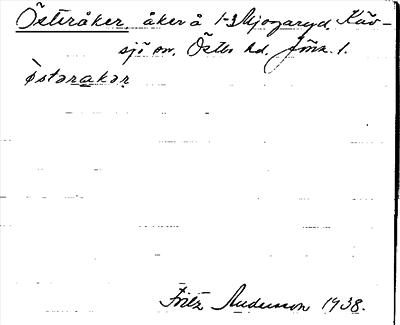 Österåker, åker å 1-3 Mjogaryd. Käv-
sjö sn. Östbo hd. Jönk. l.
østərakər
Fritz Andersson 1938.